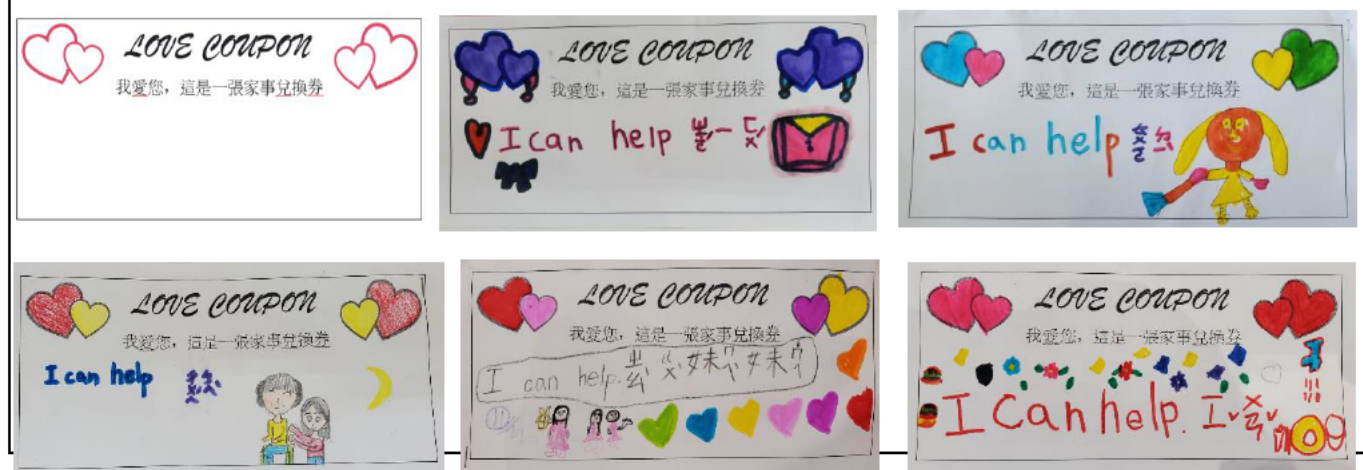 LOVE COUPON
我愛您，這是一張家事兌換券
LOVE COUPON
我愛您，這是一張家事兌換券
I can help ㄓㄜˊ ㄧ ㄈㄨˊ
LOVE COUPON
我愛您，這是一張家事兌換券
I can help
LOVE COUPON
我愛您，這是一張家事兌換券
I can help
LOVE COUPON
我愛您，這是一張家事兌換券
I can help. ㄓㄠˋ ㄍㄨˋ 妹妹
LOVE COUPON
我愛您，這是一張家事兌換券
I Can help.